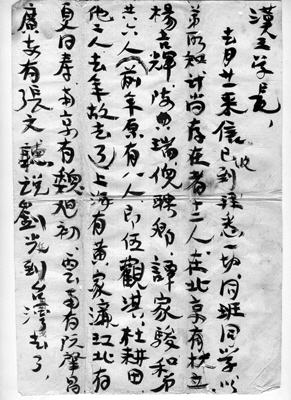 漢五学长，
去月廿一来信已到，聆悉一切。同班同学以
弟所知，计尚存在者十二人。在北京有杜立、
楊吉輝、陶興瑞、倪聘卿、譚家駿和弟
共六人（前年原有八人，即伍觀淇、杜耕田
他二人去年故去了）上海有黄家濂，江北有
夏日寿，南京有魏旭初，雲南有阮肇昌，
廣安有張文，聽説劉光到台湾去了，